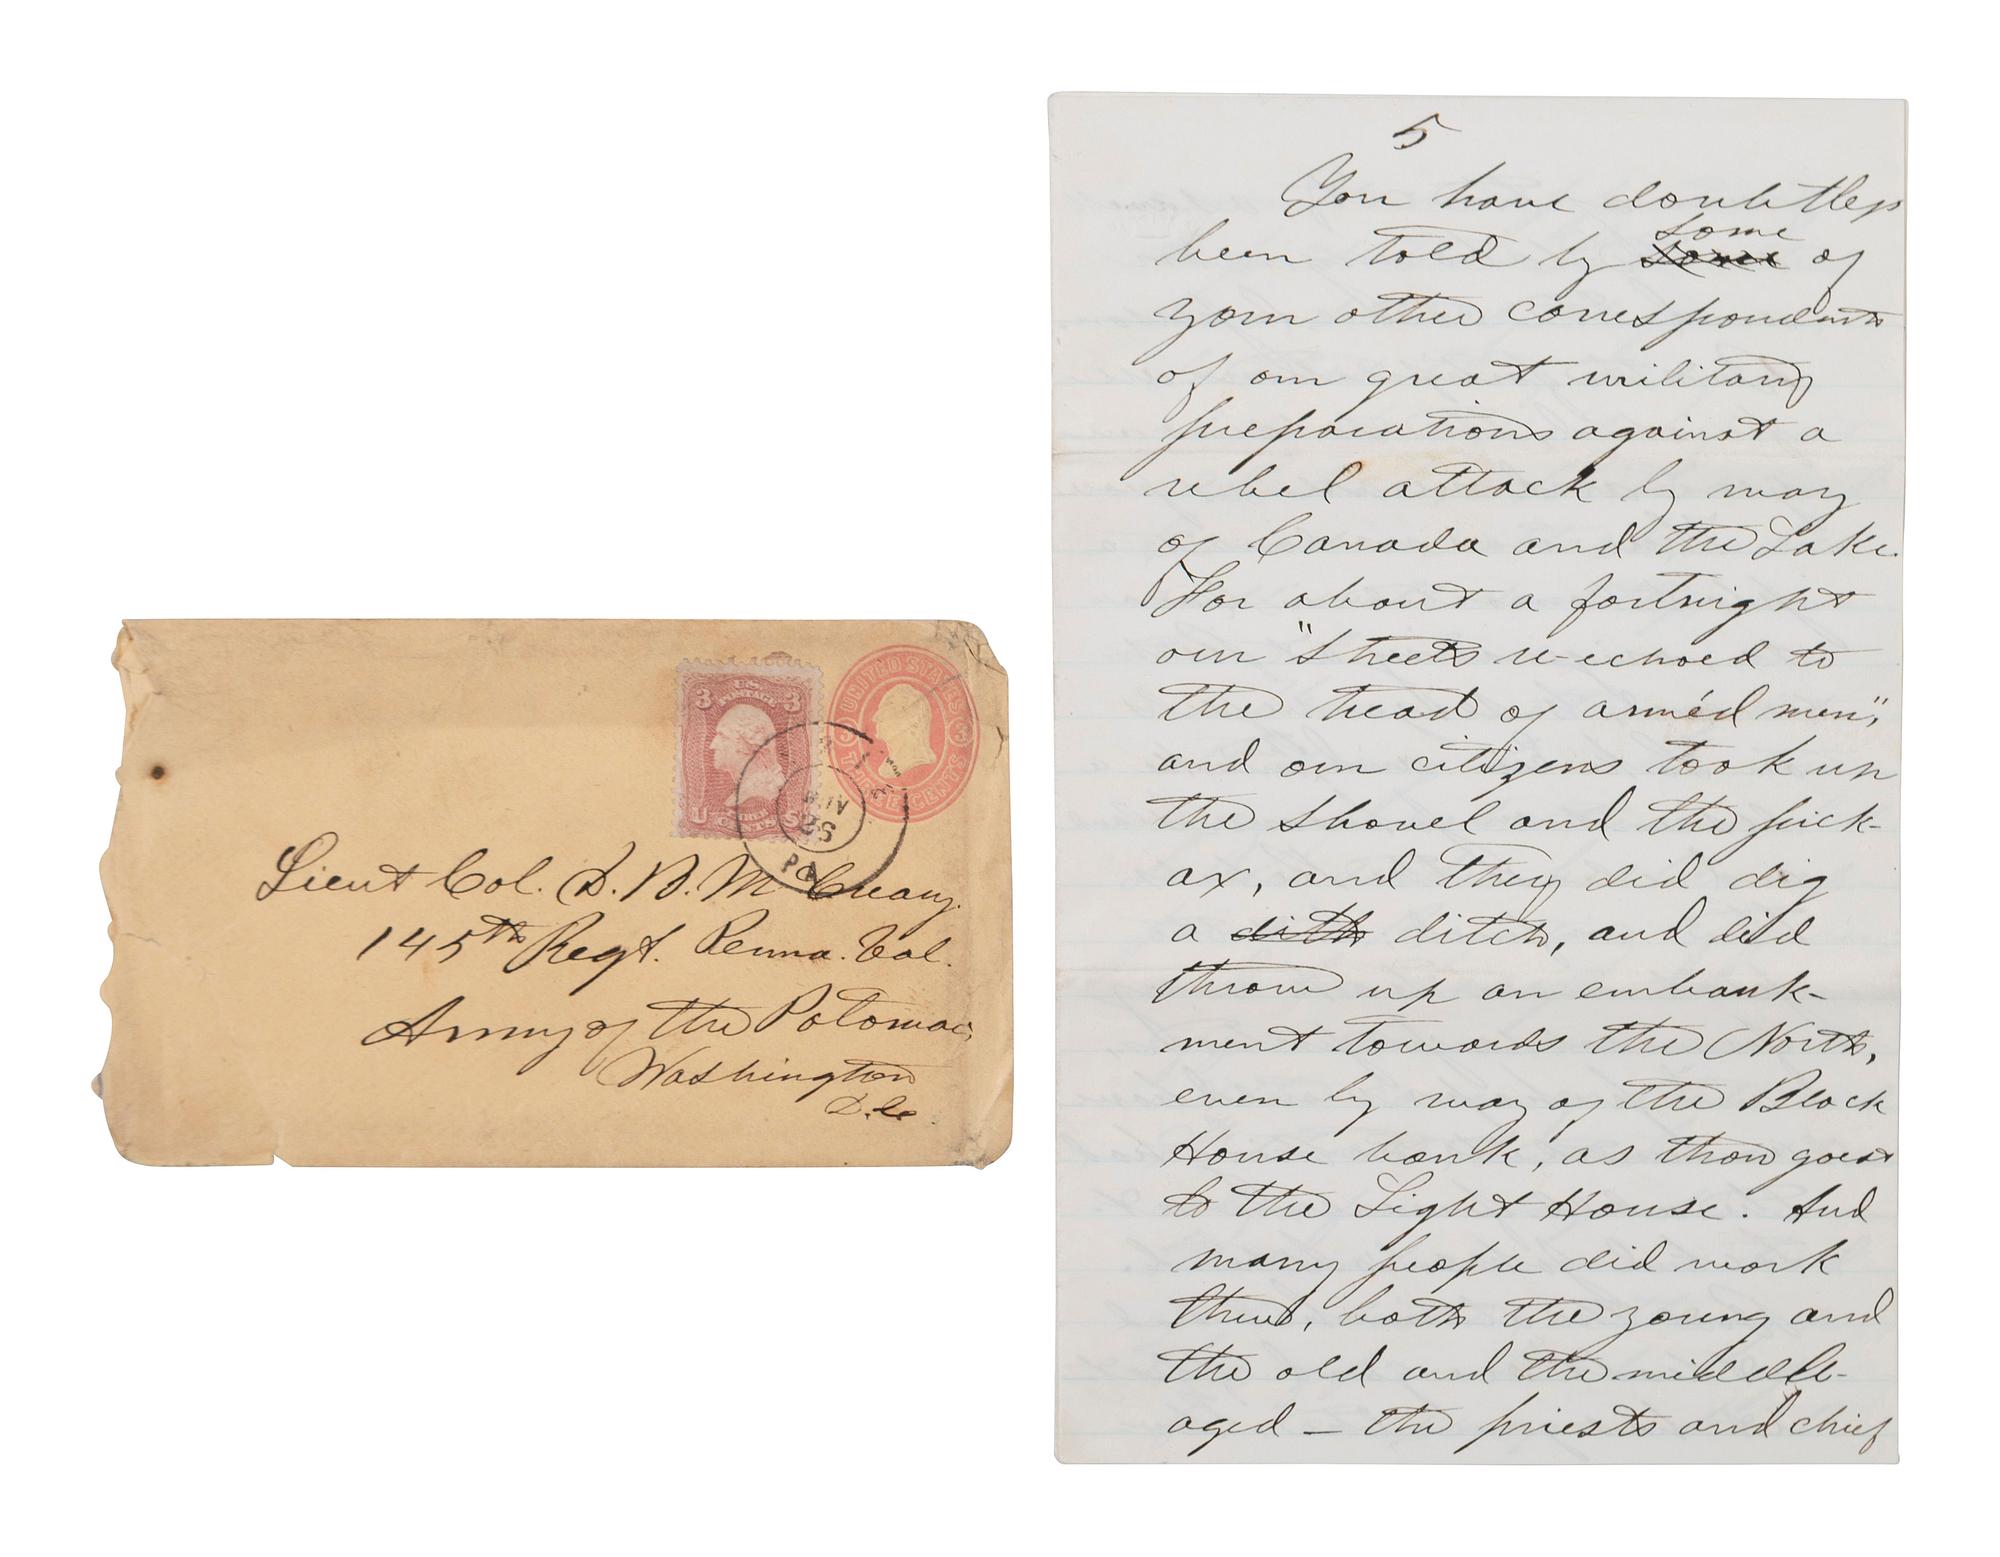 U.S. POSTAGE
3 3
U S
THREE CENTS
UNITED STATES
3 3
THREE CENTS
26
PA
Lieut Col. D. B. McCreary.
145th Regt. Penna. Vol.
Army of the Potomac,
Washington
D.C.
5
You have doubtless
been told by some some of
your other correspondents
of our great military
preparations against a
rebel attack by way
of Canada and the Lake.
For about a fortnight
our "streets re-echoed to
the tread of arméd men",
and our citizens took up
the shovel and the pick-
ax, and they did dig
a dith ditch, and did
throw up an embank-
ment towards the North,
even by way of the Block
House bank, as thou goest
to the Light House. And
many people did work
there, both the young and
the old and the middle-
aged — the priests and chief